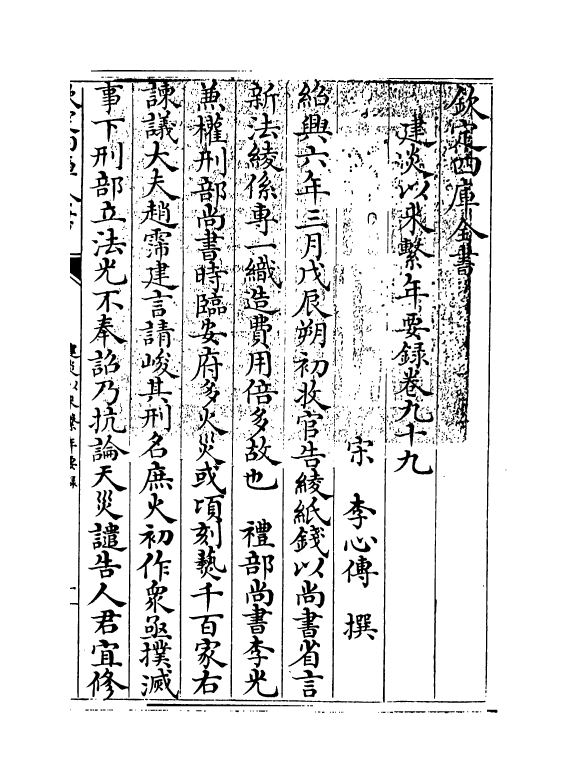 欽定四庫全書
建炎以來繫年要録卷九十九
宋 李心傳 撰
紹興六年三月戊辰朔初收官告綾紙錢以尚書省言
新法綾係專一織造費用倍多故也 禮部尚書李光
兼權刑部尚書時臨安府多火災或項刻爇千百家右
諫議大夫趙霈建言請峻其刑名庶火初作衆亟撲滅
事下刑部立法光不奉詔乃抗論天災譴告人君宜修
欽定四庫全書
建炎以來繫年要録
一